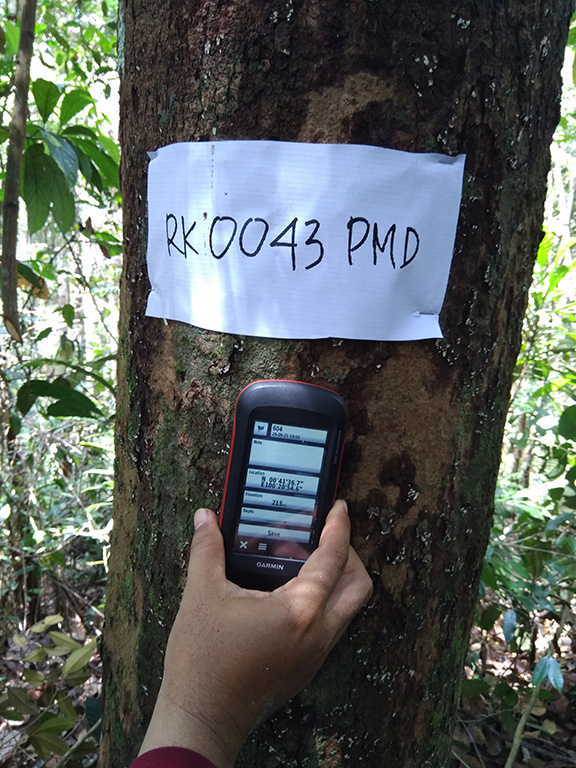 RK 0043 PMD
604
Note
Location
N 00°41'36.2"
E100°20'54.6"
Elevation
215m
Depth
Save
GARMIN